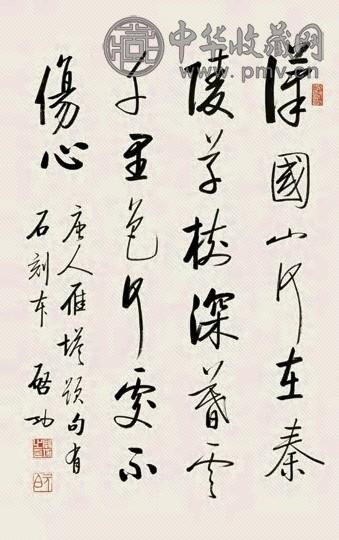 中华收藏网
www.pmv.cn
漢國山河在秦
陵草樹深暮雲
千里色何處不
傷心
唐人雁塔題句有
石刻本 啓功